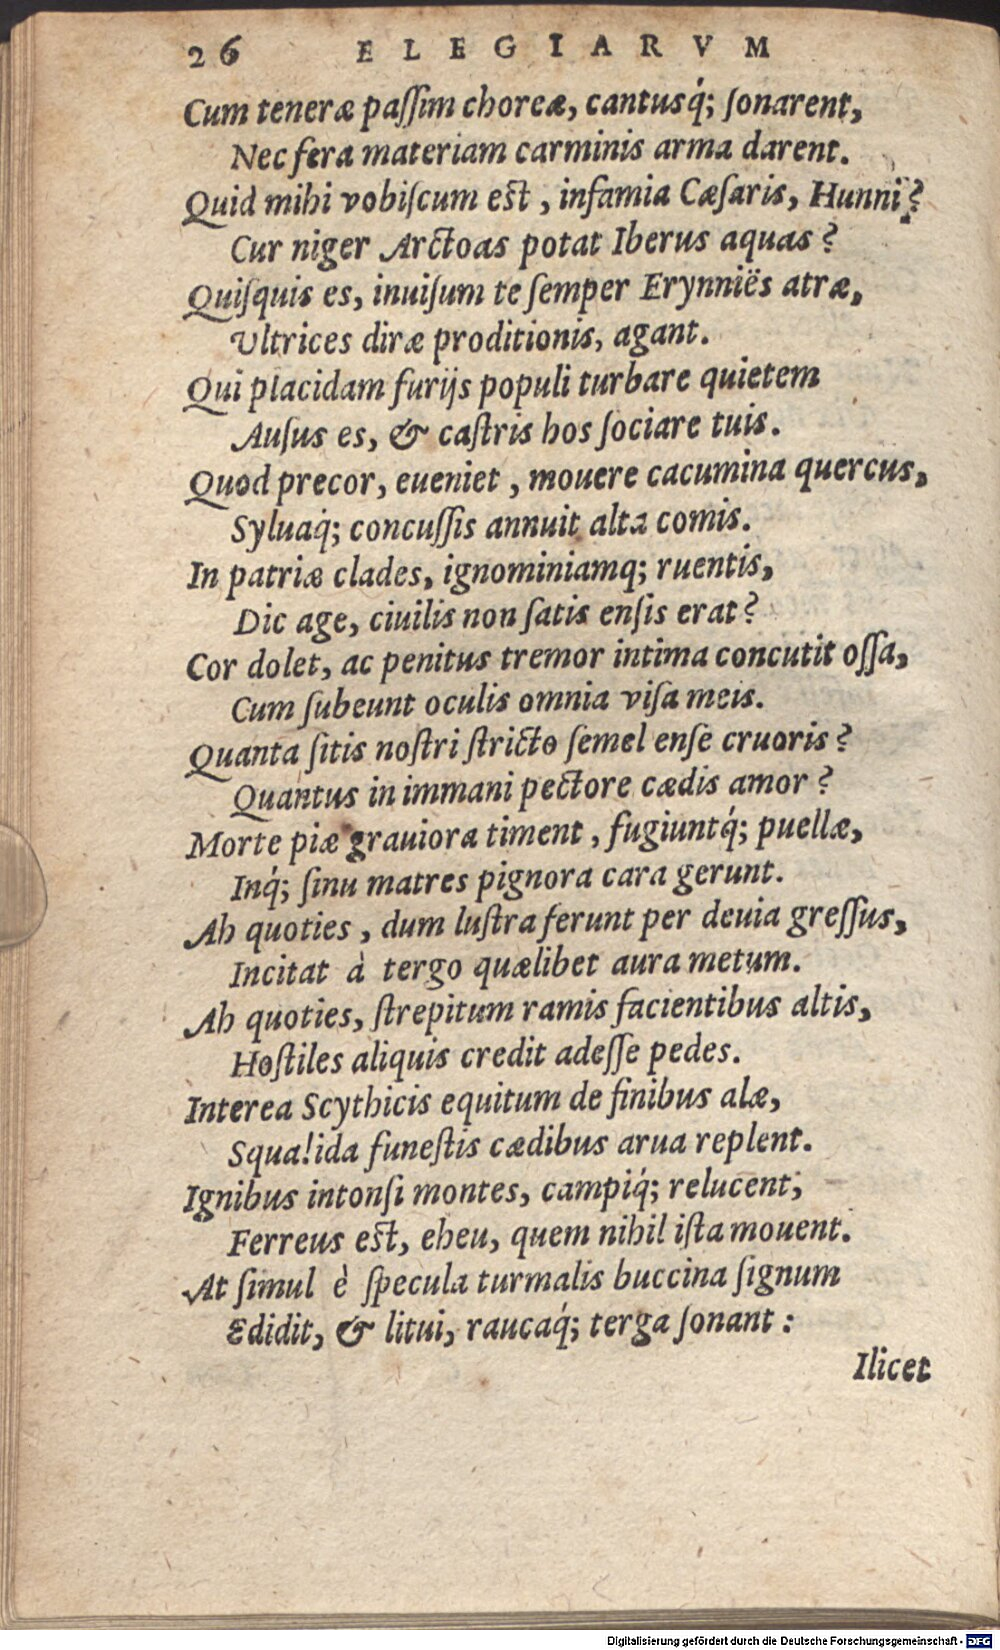 26 ELEGIARVM
Cum teneræ paſſim choreæ, cantusq́; ſonarent,
Nec fera materiam carminis arma darent.
Quid mihi vobiſcum est, infamia Cæſaris, Hunni?
Cur niger Arctoas potat Iberus aquas?
Quiſquis es, inuiſum te ſemper Erynniës atræ,
Vltrices diræ proditionis, agant.
Qui placidam furijs populi turbare quietem
Auſus es, & caſtris hos ſociare tuis.
Quod precor, eueniet, mouere cacumina quercus,
Syluaq́; concuſſis annuit alta comis.
In patriæ clades, ignominiamq; ruentis,
Dic age, ciuilis non ſatis enſis erat?
Cor dolet, ac penitus tremor intima concutit oſſa,
Cum ſubeunt oculis omnia viſa meis.
Quanta ſitis noſtri ſtricto ſemel enſe cruoris?
Quantus in immani pectore cædis amor?
Morte piæ grauiora timent, fugiuntq́; puellæ,
Inq́; ſinu matres pignora cara gerunt.
Ah quoties, dum luſtra ferunt per deuia greſſus,
Incitat à tergo quælibet aura metum.
Ah quoties, ſtrepitum ramis facientibus altis,
Hoſtiles aliquis credit adeſſe pedes.
Interea Scythicis equitum de finibus alæ,
Squalida funeſtis cædibus arua replent.
Ignibus intonſi montes, campiq́; relucent;
Ferreus est, eheu, quem nihil iſta mouent.
At ſimul è ſpecula turmalis buccina ſignum
Edidit, & litui, raucaq́; terga ſonant:
Ilicet
Digitalisierung gefördert durch die Deutsche Forschungsgemeinschaft - DFG